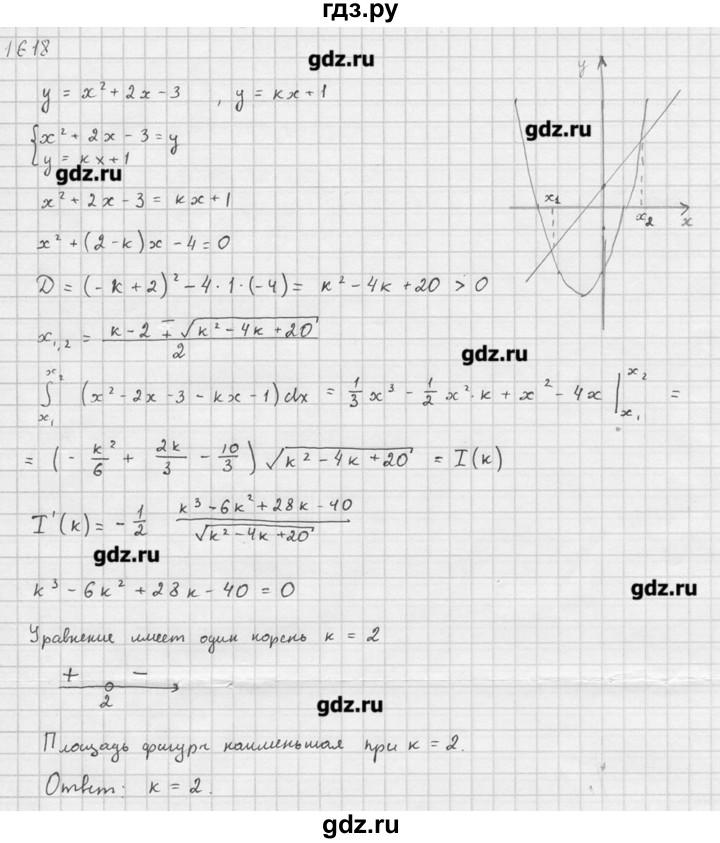 гдз.ру
1618
gdz.ru
y = x² + 2x - 3 , y = kx + 1
{x² + 2x - 3 = y
{y = kx + 1
gdz.ru
x² + 2x - 3 = kx + 1
x² + (2 - k)x - 4 = 0
D = (-k + 2)² - 4 · 1 · (-4) = k² - 4k + 20 > 0
x₁,₂ = (k - 2 ∓ √(k² - 4k + 20))/2
y
gdz.ru
x₁
x₂
x
gdz.ru
∫ₓ₁ˣ² (x² - 2x - 3 - kx - 1) dx = 1/3 x³ - 1/2 x² · k + x² - 4x |ₓ₁ˣ² =
= (- k²/6 + 2k/3 - 10/3) √(k² - 4k + 20) = I(k)
I'(k) = - 1/2 (k³ - 6k² + 28k - 40)/√(k² - 4k + 20)
gdz.ru
k³ - 6k² + 28k - 40 = 0
gdz.ru
Уравнение имеет один корень k = 2
+ -
2
gdz.ru
Площадь фигуры наименьшая при k = 2.
Ответ: k = 2.
gdz.ru